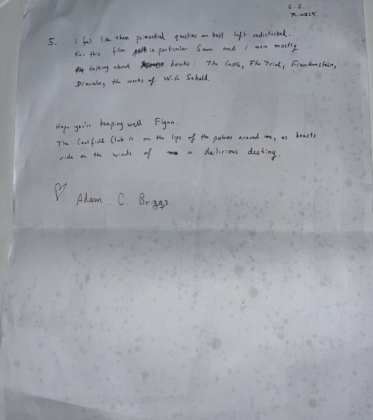 C.S.
5. I feel like these primordial questions are best left undisturbed.
For this film in particular Sam and I were mostly
talking about books: The Castle, The Trial, Frankenstein,
Dracula, the works of W.G. Sebald.
Hope you're keeping well Flynn.
The Caulfield Club is on the lips of the around me, as beasts
ride on the winds of a delirious destiny.
♡ Adam. C. Briggs